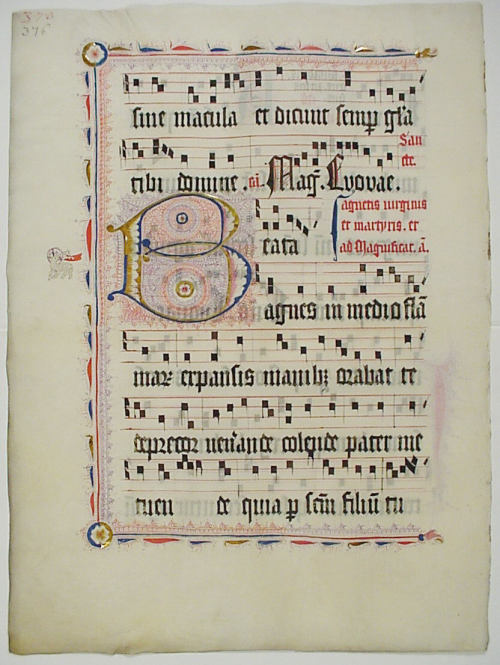 376
sine macula et dicunt semp gl̄a
San
cte.
tibi domine. Mag̃. Evovae.
agnetis virginis
et martyris. et
ad Magnificat. a᷃.
Beata
agnes in medio flā
mar᷑ expansis manibꝫ orabat te
deprecor ven̄ande colende pater me
tuen de quia p scm̄ filiū tu